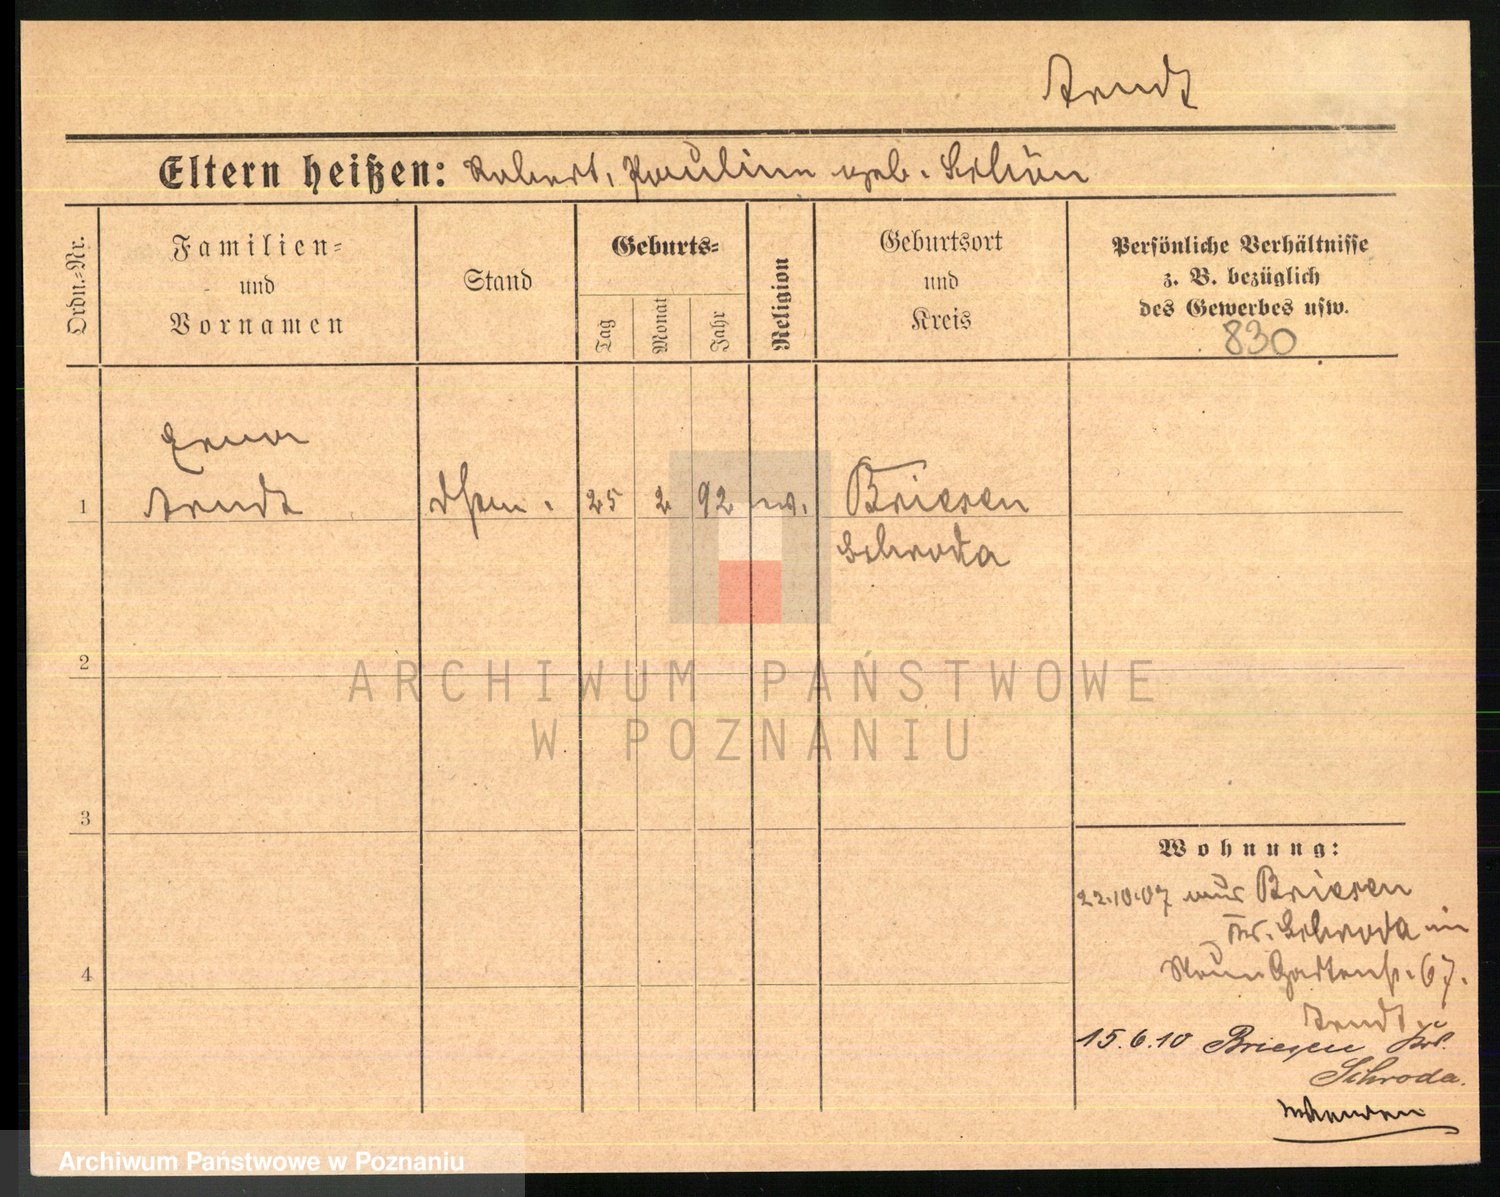 Arndt
Eltern heißen: Robert, Pauline geb. Schön
Ordn.-Nr.
Familien- und Vornamen
Stand
Geburts-
Tag
Monat
Jahr
Religion
Geburtsort und Kreis
Persönliche Verhältnisse
z. B. bezüglich
des Gewerbes usw.
830
Erna
1 Arndt 25 2 92 ev. Briesen
Schroda
2
ARCHIWUM PAŃSTWOWE
W POZNANIU
3
Wohnung:
22.10.07 aus Briesen
Kr. Schroda in
4
Gartenstr. 67.
Arndt.
15.6.10 Briesen Kr.
Schroda.
Archiwum Państwowe w Poznaniu